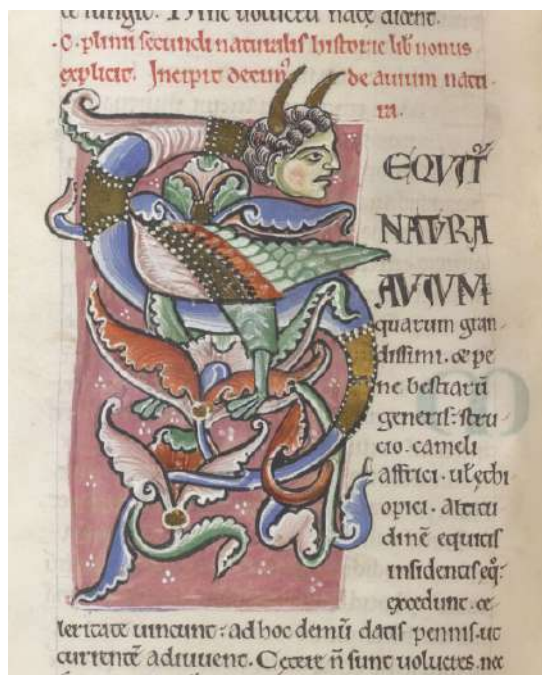 ce iungit. Hinc uolucrū naturę dicent.
.C. plinii secundi naturalis historie lib̄ nonus
explicit. Incipit decim⁹ de auium natu
ra.
EQVIT᷑
NATVRA
AVIVM
quarum gran
dissimi. & pe
ne bestiarū
generis: stru
cio. cameli
affrici. ul᷑ ęthi
opici. altitu
dinē equitis
insidentis eq̊:
excedunt. ce
leritate uincunt: ad hoc demū datis pennis. ut
currentē adiuuent. Cetere n̄ sunt uolucres. nec